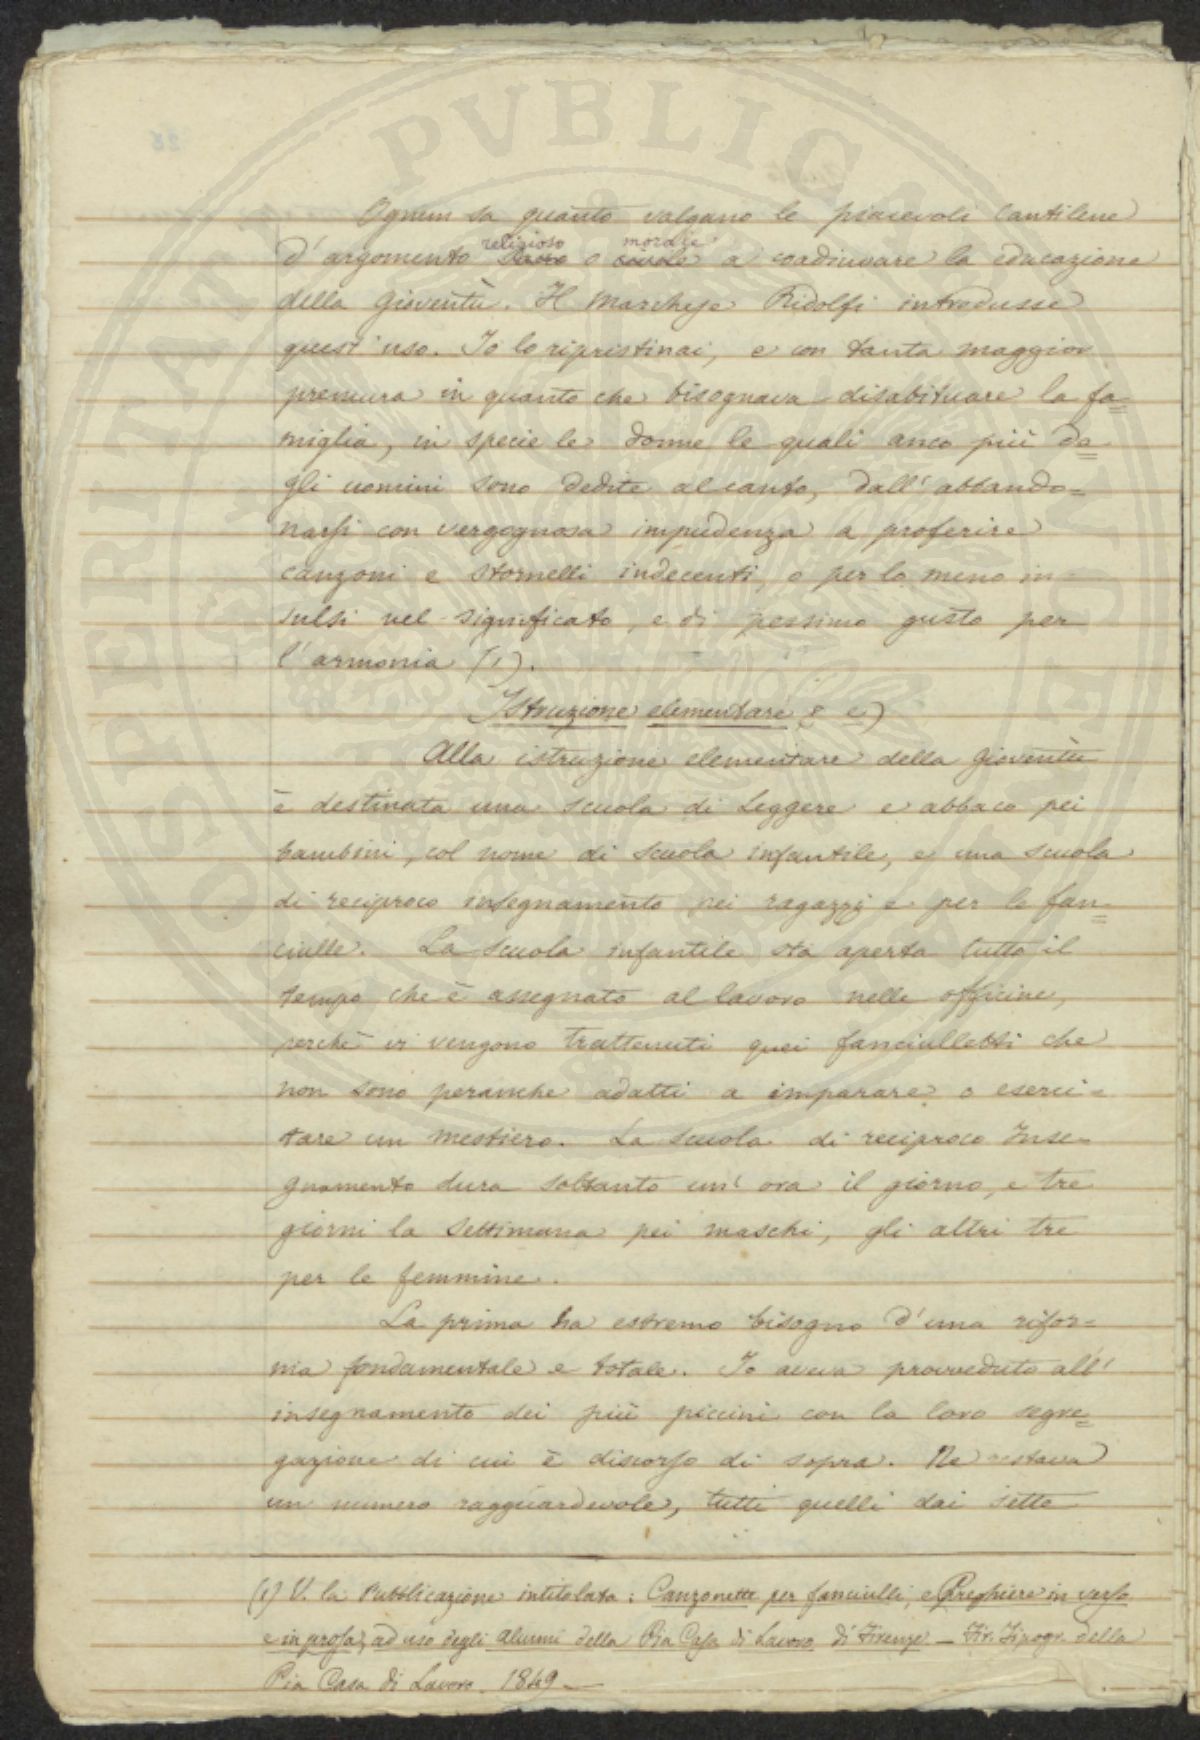 Ognun sa quanto valgano le piacevoli Cantilene
d'argomento religioso o morale a coadiuvare la educazione
della Gioventù. Il Marchese Ridolfi introdusse
quest'uso. Io lo ripristinai, e con tanta maggior
premura in quanto che bisognava disabituare la fa=
miglia, in specie le donne le quali anco più de=
gli uomini sono dedite al canto, dall'abbando=
narsi con vergognosa impudenza a proferire
canzoni e stornelli indecenti, o per lo meno in=
sulsi nel significato, e di pessimo gusto per
l'armonia (1).
Istruzione elementare § e)
Alla istruzione elementare della Gioventù
è destinata una scuola di Leggere e abbaco pei
bambini, col nome di scuola infantile, e una scuola
di reciproco insegnamento pei ragazzi e per le fan=
ciulle. La scuola infantile sta aperta tutto il
tempo che è assegnato al lavoro nelle officine,
perchè vi vengono trattenuti quei fanciulletti che
non sono peranche adatti a imparare o eserci=
tare un mestiero. La scuola di reciproco Inse=
gnamento dura soltanto un'ora il giorno, e tre
giorni la settimana pei maschi, gli altri tre
per le femmine.
La prima ha estremo bisogno d'una rifor=
ma fondamentale e totale. Io aveva provveduto all'
insegnamento dei più piccini con la loro segre=
gazione di cui è discorso di sopra. Ne restava
un numero ragguardevole, tutti quelli dai sette
(1) V. la Pubblicazione intitolata: Canzonette per fanciulli, e Preghiere in verso
e in prosa, ad uso degli alunni della Pia Casa di Lavoro di Firenze — Fir. Tipogr. della
Pia Casa di Lavoro. 1849 —
PROSPERITATI PVBLICAE